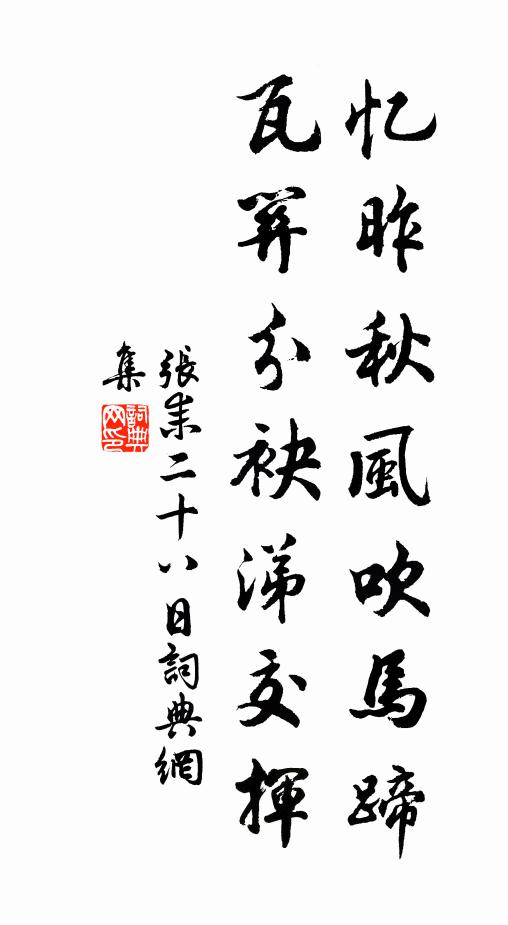 忆昨秋風吹馬蹄
瓦分袂涕交揮
張耒二十八日詞典網
集
詞典网印